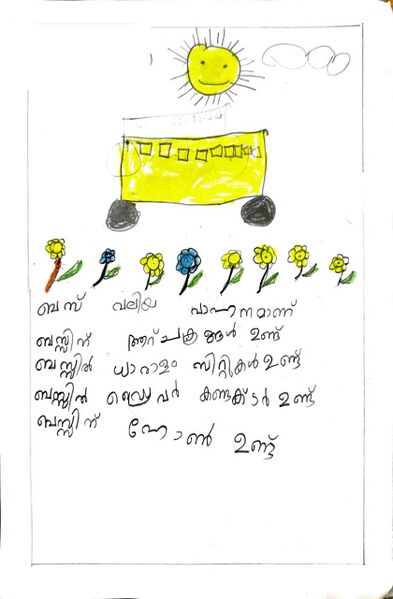 ബസ് വലിയ വാഹനമാണ്
ബസ്സിന് ആറ് ചക്രങ്ങൾ ഉണ്ട്
ബസ്സിൽ ധാരാളം സീറ്റുകൾ ഉണ്ട്
ബസ്സിൽ ഡ്രൈവർ കണ്ടക്ടർ ഉണ്ട്
ബസ്സിന് ഹോൺ ഉണ്ട്